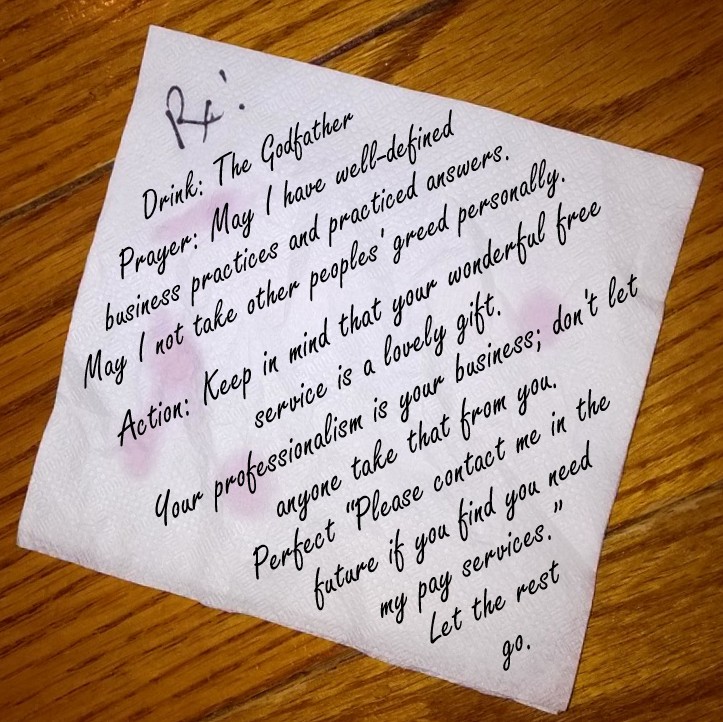 Rx:
Drink: The Godfather
Prayer: May I have well-defined
business practices and practiced answers.
May I not take other peoples' greed personally.
Action: Keep in mind that your wonderful free
service is a lovely gift.
Your professionalism is your business; don't let
anyone take that from you.
Perfect "Please contact me in the
future if you find you need
my pay services."
Let the rest
go.